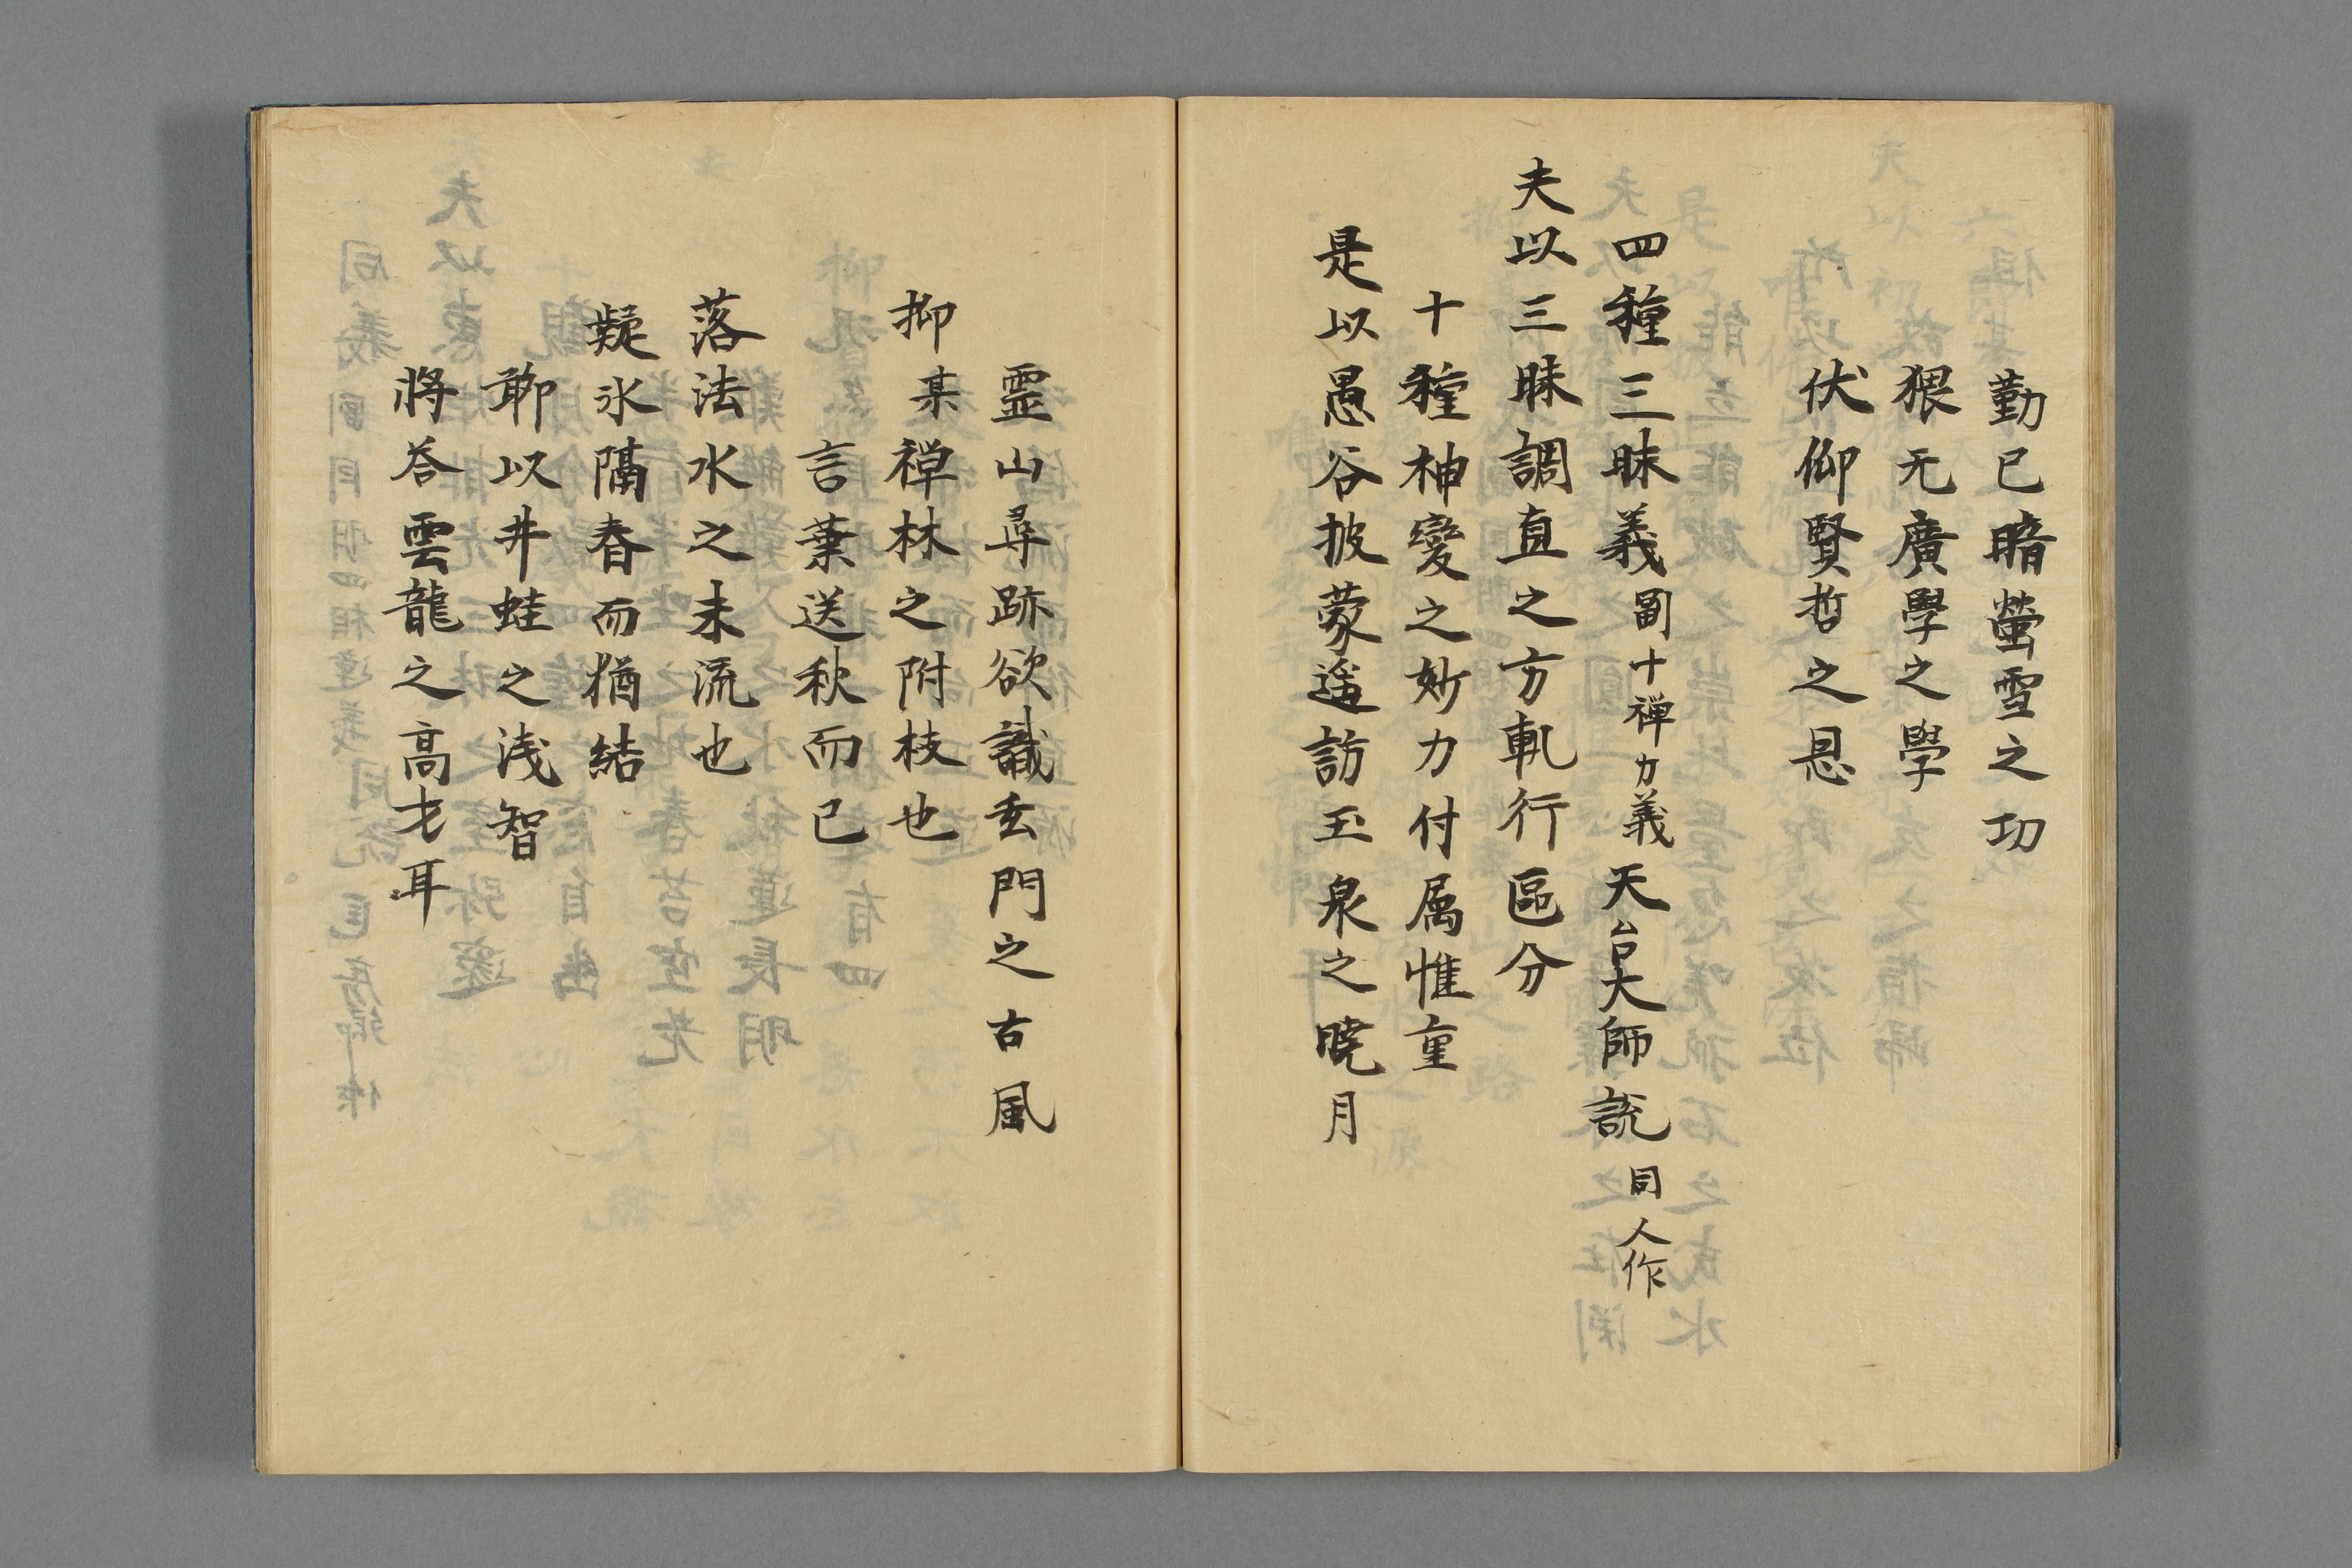 勤已暗螢雪之功
猥无廣學之學
伏仰賢哲之恩
四種三昧義副十禅力義天台大師説同人作
夫以三昧調直之方軌行區分
十種神變之妙力付属惟重
是以愚谷披蒙遥訪玉泉之曉月
霊山尋跡欲識玄門之古風
抑某禅林之附枝也
言葉送秋而已
落法水之末流也
凝氷隔春而猶結
聊以井蛙之浅智
將答雲龍之高才耳